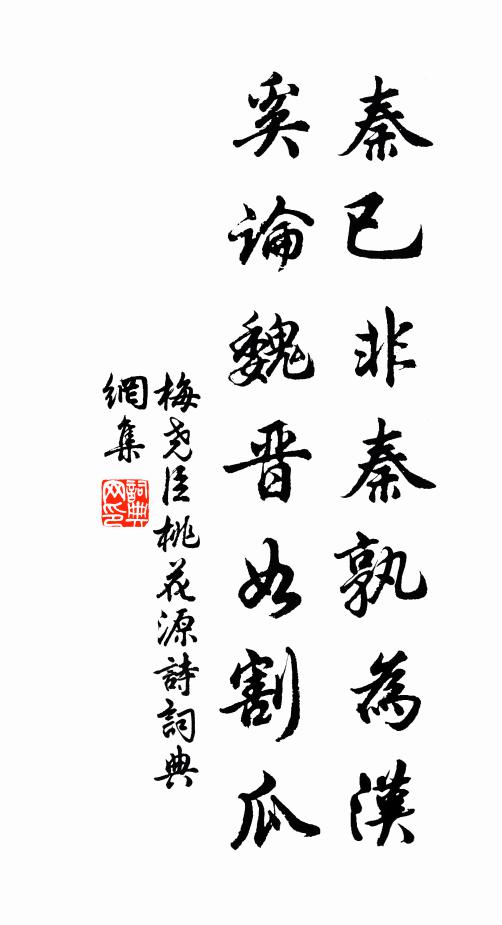 秦已非秦孰為漢
奚論魏晋如割瓜
梅尧臣桃花源詩詞典
網集
詞典網印